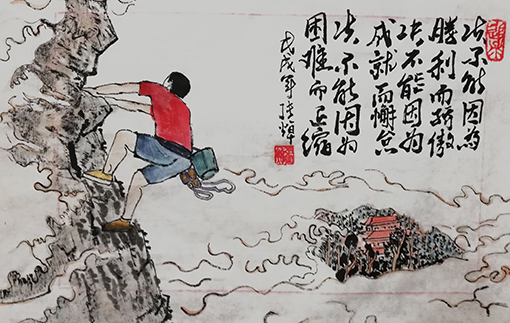 决不能因為
勝利而骄傲
决不能因为
成就而懈怠
决不能因为
困難而退缩
戊戌年